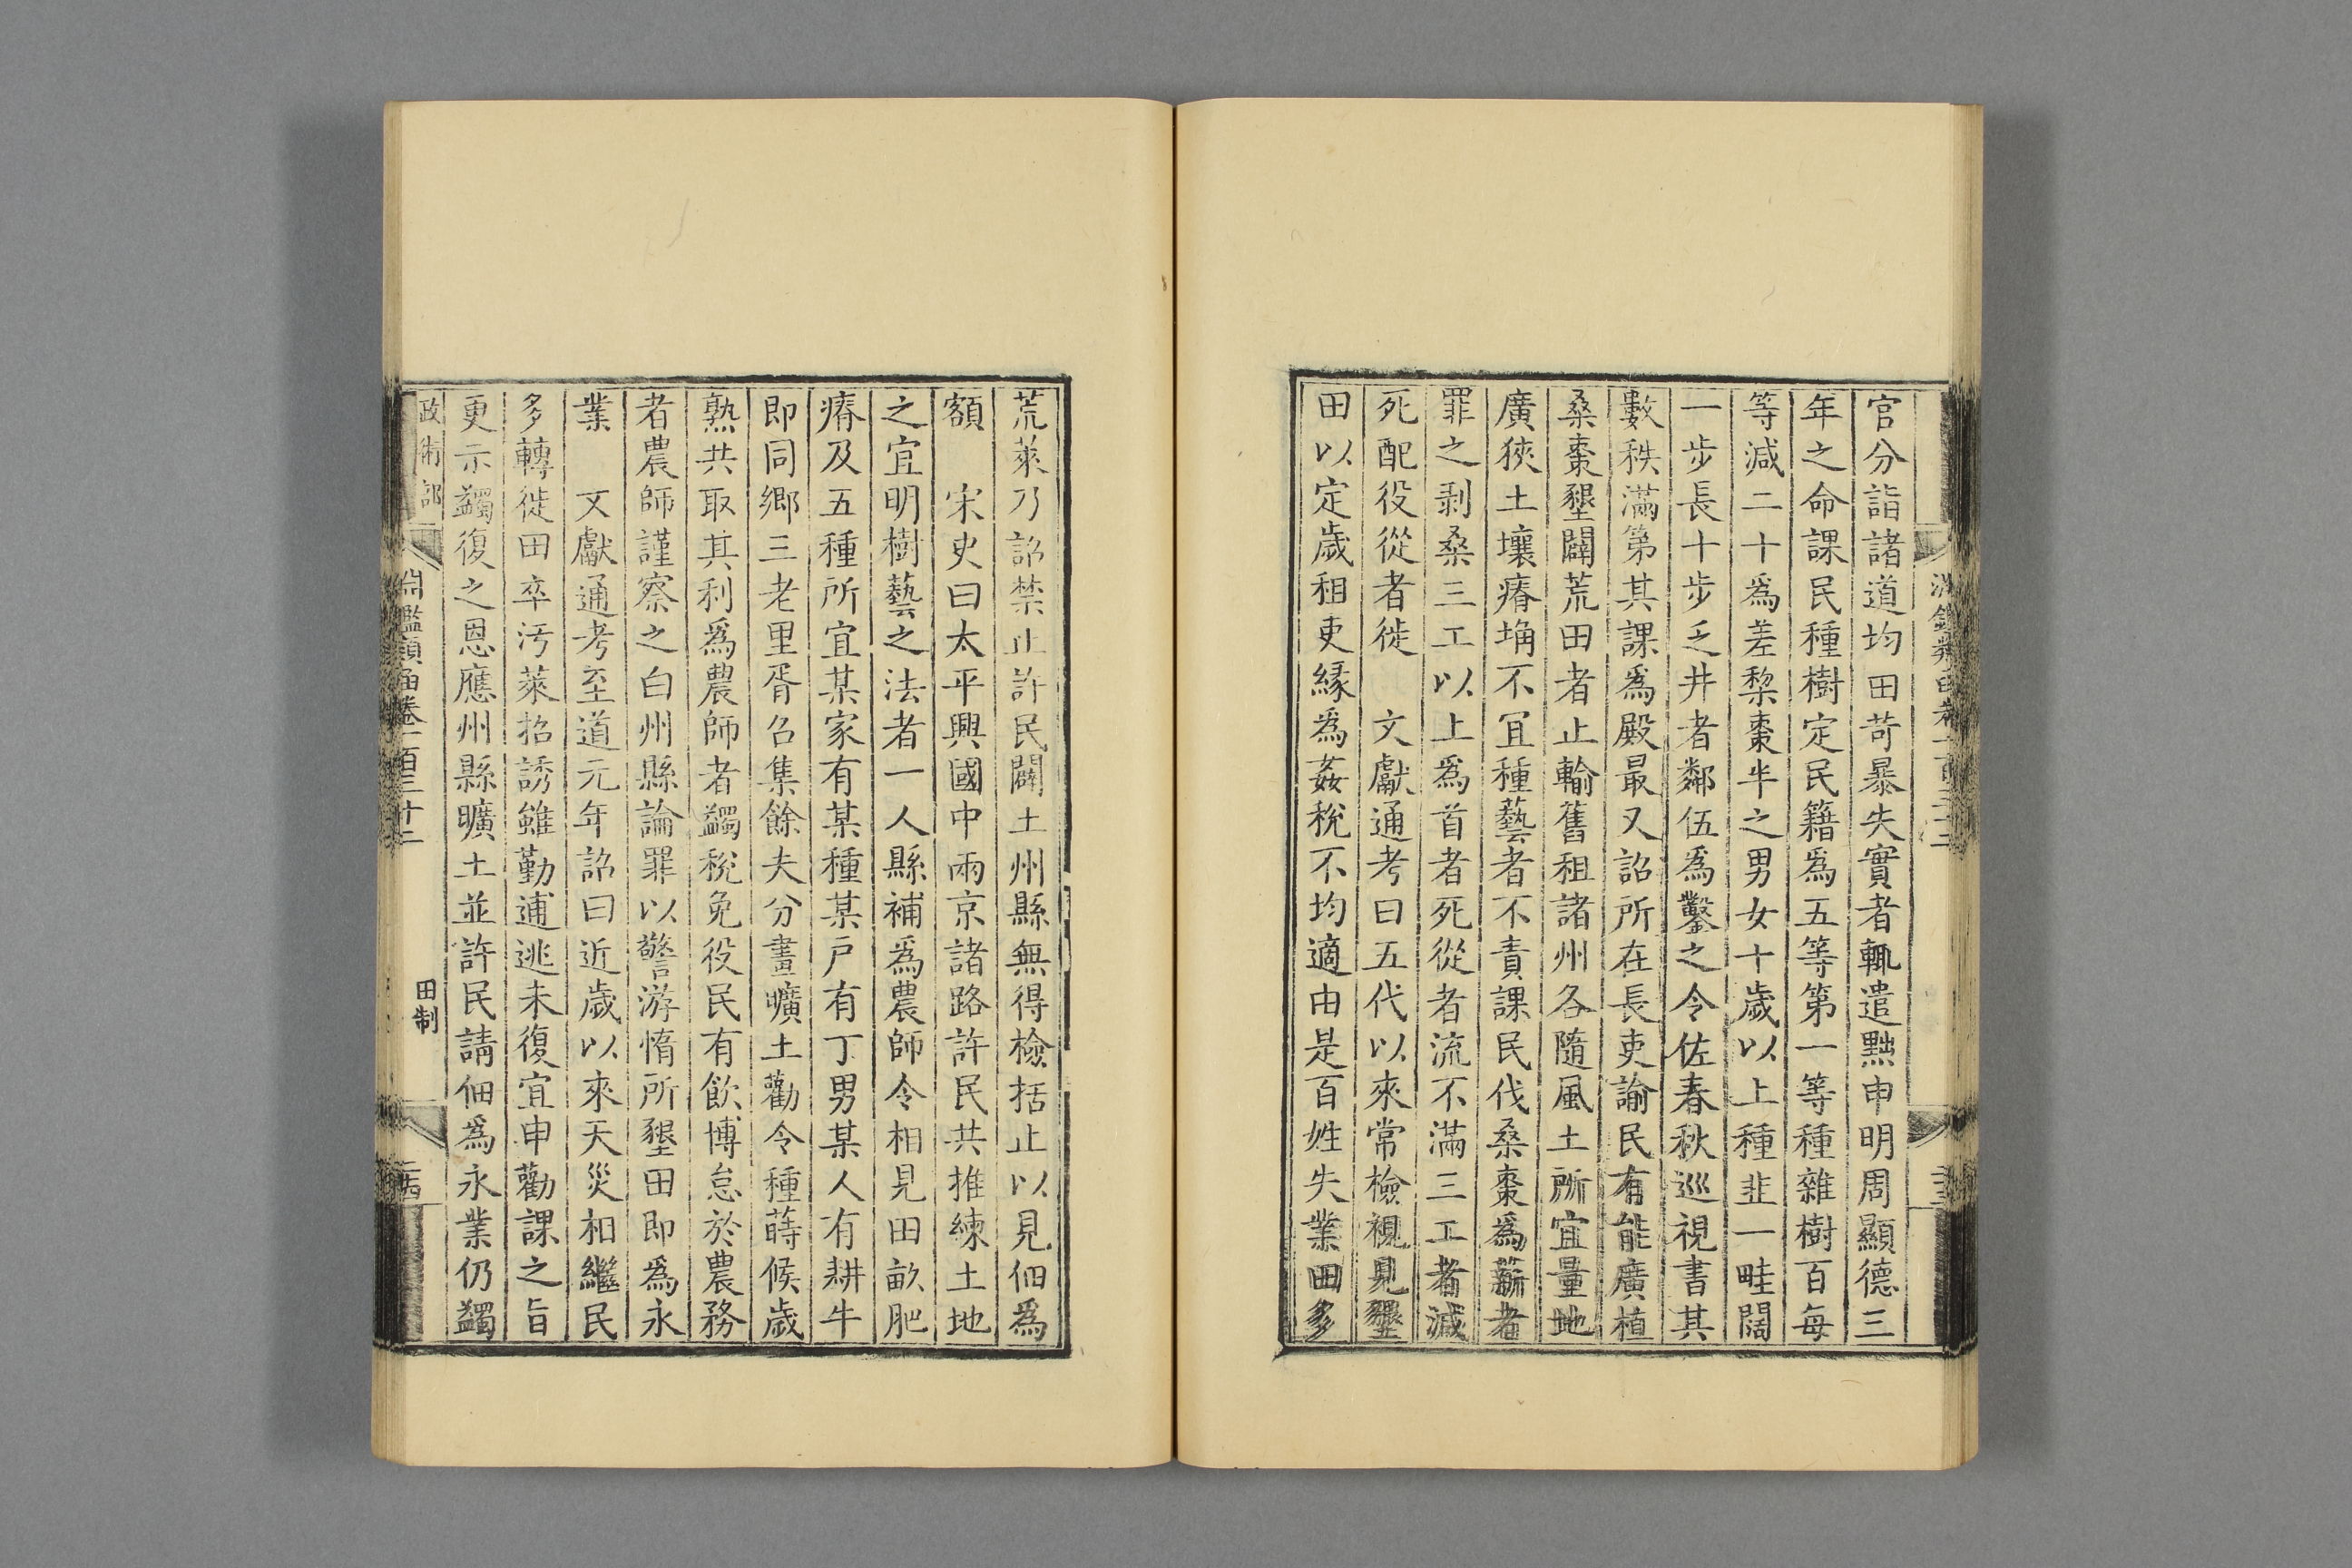 官分詣諸道均田苛暴失實者輒遣黜申明周顯德三
年之命課民種樹定民籍爲五等第一等種雜樹百每
等減二十爲差棃棗半之男女十歲以上種韭一畦闊
一步長十步乏井者鄰伍爲鑿之令佐春秋巡視書其
數秩滿第其課爲殿最又詔所在長吏諭民有能廣植
桑棗墾闢荒田者止輸舊租諸州各隨風土所宜量地
廣狹土壤瘠埆不宜種藝者不責課民伐桑棗爲薪者
罪之剥桑三工以上爲首者死從者流不滿三工者減
死配役從者徙　文獻通考曰五代以來常檢視見墾
田以定歲租吏緣爲姦稅不均適由是百姓失業田多
荒萊乃詔禁止許民闢土州縣無得檢括止以見佃爲
額　宋史曰太平興國中兩京諸路許民共推練土地
之宜明樹藝之法者一人縣補爲農師令相見田畝肥
瘠及五種所宜某家有某種某戸有丁男某人有耕牛
即同鄉三老里胥召集餘夫分畫曠土勸令種蒔候歲
熟共取其利爲農師者蠲稅免役民有飲博怠於農務
者農師謹察之白州縣論罪以警游惰所墾田即爲永
業　文獻通考至道元年詔曰近歲以來天災相繼民
多轉徙田卒汚萊招誘雖勤逋逃未復宜申勸課之旨
更示蠲復之恩應州縣曠土並許民請佃爲永業仍蠲
政術部　淵鑑類函卷一百三十二　田制　二十四